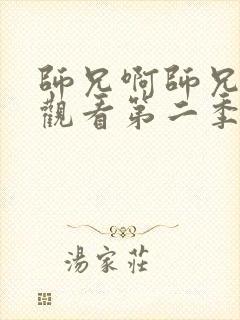 師兄啊師兄
觀看第二季
湯家莊